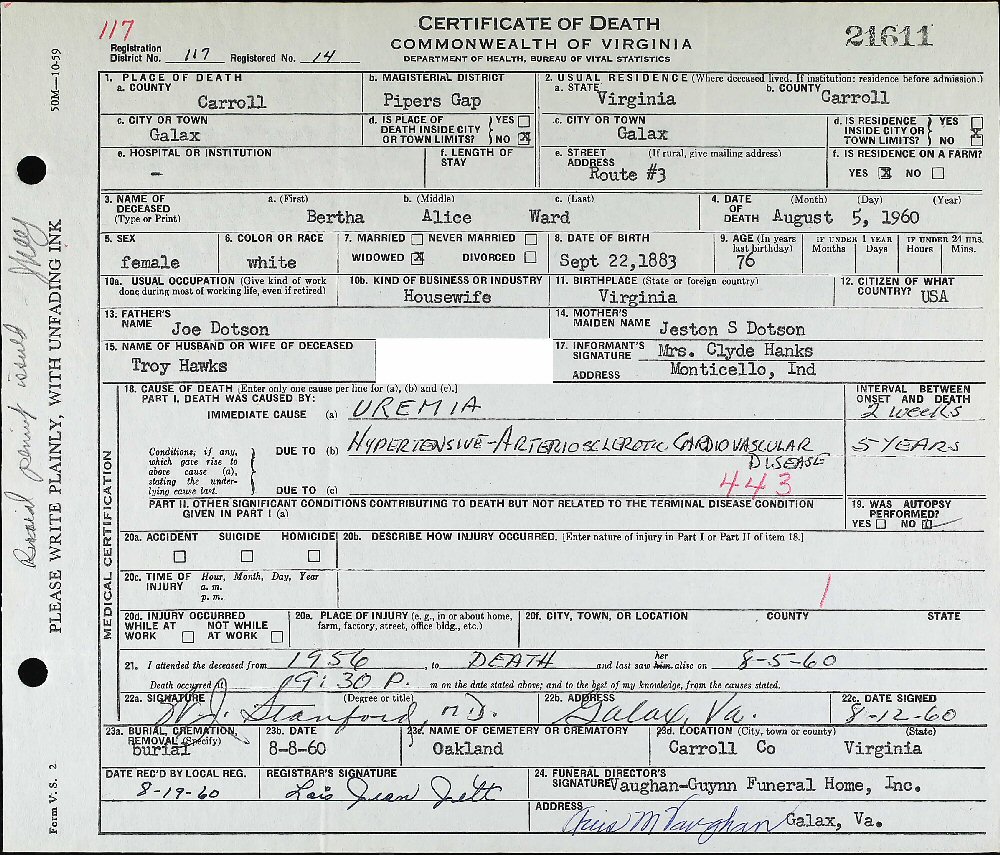 117
CERTIFICATE OF DEATH
COMMONWEALTH OF VIRGINIA
DEPARTMENT OF HEALTH, BUREAU OF VITAL STATISTICS
21611
Registration District No. 117 Registered No. 14
50M—10-59
1. PLACE OF DEATH
a. COUNTY
Carroll
b. MAGISTERIAL DISTRICT
Pipers Gap
2. USUAL RESIDENCE (Where deceased lived. If institution: residence before admission.)
a. STATE
Virginia
b. COUNTY
Carroll
c. CITY OR TOWN
Galax
d. IS PLACE OF DEATH INSIDE CITY OR TOWN LIMITS? YES NO X
c. CITY OR TOWN
Galax
d. IS RESIDENCE INSIDE CITY OR TOWN LIMITS? YES NO
e. HOSPITAL OR INSTITUTION
-
f. LENGTH OF STAY
e. STREET ADDRESS (If rural, give mailing address)
Route #3
f. IS RESIDENCE ON A FARM?
YES X NO
3. NAME OF DECEASED
(Type or Print)
a. (First) b. (Middle) c. (Last)
Bertha Alice Ward
4. DATE OF DEATH (Month) (Day) (Year)
August 5, 1960
5. SEX
female
6. COLOR OR RACE
white
7. MARRIED NEVER MARRIED
WIDOWED X DIVORCED
8. DATE OF BIRTH
Sept 22,1883
9. AGE (In years last birthday)
76
IF UNDER 1 YEAR
Months Days
IF UNDER 24 HRS.
Hours Mins.
10a. USUAL OCCUPATION (Give kind of work done during most of working life, even if retired)
10b. KIND OF BUSINESS OR INDUSTRY
Housewife
11. BIRTHPLACE (State or foreign country)
Virginia
12. CITIZEN OF WHAT COUNTRY? USA
13. FATHER'S NAME Joe Dotson
14. MOTHER'S MAIDEN NAME Jeston S Dotson
15. NAME OF HUSBAND OR WIFE OF DECEASED
Troy Hawks
17. INFORMANT'S SIGNATURE Mrs. Clyde Hanks
ADDRESS Monticello, Ind
MEDICAL CERTIFICATION
18. CAUSE OF DEATH [Enter only one cause per line for (a), (b) and (c).]
PART I. DEATH WAS CAUSED BY:
IMMEDIATE CAUSE (a) UREMIA
INTERVAL BETWEEN ONSET AND DEATH
2 weeks
Conditions, if any, which gave rise to above cause (a), stating the underlying cause last.
DUE TO (b) HYPERTENSIVE-ARTERIOSCLEROTIC CARDIOVASCULAR
DISEASE
5 YEARS
DUE TO (c)
443
PART II. OTHER SIGNIFICANT CONDITIONS CONTRIBUTING TO DEATH BUT NOT RELATED TO THE TERMINAL DISEASE CONDITION
GIVEN IN PART I (a)
19. WAS AUTOPSY PERFORMED?
YES NO
20a. ACCIDENT SUICIDE HOMICIDE
20b. DESCRIBE HOW INJURY OCCURRED. [Enter nature of injury in Part I or Part II of item 18.]
20c. TIME OF INJURY Hour, Month, Day, Year
a. m.
p. m.
20d. INJURY OCCURRED
WHILE AT WORK NOT WHILE AT WORK
20e. PLACE OF INJURY (e. g., in or about home, farm, factory, street, office bldg., etc.)
20f. CITY, TOWN, OR LOCATION COUNTY STATE
21. I attended the deceased from 1956, to DEATH and last saw her him alive on 8-5-60
Death occurred at 9:30 P. m on the date stated above; and to the best of my knowledge, from the causes stated.
22a. SIGNATURE (Degree or title)
Stanford, M.D.
22b. ADDRESS
Galax, Va.
22c. DATE SIGNED
8-12-60
23a. BURIAL, CREMATION, REMOVAL (Specify)
burial
23b. DATE
8-8-60
23c. NAME OF CEMETERY OR CREMATORY
Oakland
23d. LOCATION (City, town or county) (State)
Carroll Co Virginia
DATE REC'D BY LOCAL REG.
8-19-60
REGISTRAR'S SIGNATURE
Lois Jean Jett
24. FUNERAL DIRECTOR'S SIGNATURE Vaughan-Guynn Funeral Home, Inc.
ADDRESS M Vaughan Galax, Va.
PLEASE WRITE PLAINLY, WITH UNFADING INK
permit issued
Form V. S. 2